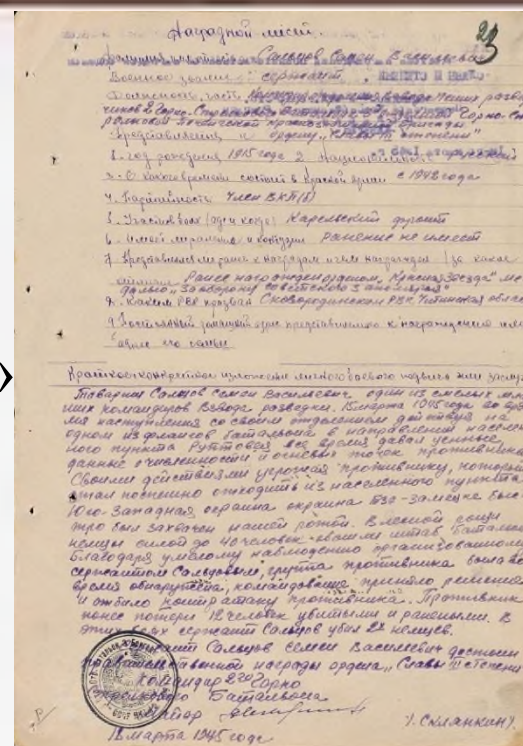 Наградной лист.
23
Фамилия имя отчество Сальцов Семен Васильевич
Военное звание сержант
Должность, часть взвода пеших развед
чиков 2 Горно-
Представляется к ордену "Славы III степени"
1. год рождения 1915 года 2. Национальность русский
3. С какого времени состоит в Красной Армии с 1942 года
4. Партийность Член ВКП(б)
5. Участие в боях (где и когда) Карельский фронт
6. Имеет ли ранения и контузии Ранение не имеет
7. Представлялся ли ранее к наградам и чем награжден (за какие
отличия Ранее награжден орденом "Красная Звезда" ме
далью "За оборону Советского Заполярья"
8. Каким РВК призван Сковородинским РВК Читинская облас
9. Постоянный домашний адрес представляемого к награждению или
адрес его семьи
Краткое конкретное изложение личного боевого подвига или заслуг
Товарищ Сальцов Семен Васильевич один из смелых мла
ших командиров Взвода разведки. В марта 1945 года во вре
мя наступления со своим отделением действуя на
одном из флангов батальона в направлении населен
ного пункта все время давал ценные
данные о численности и огневых точек противника
Своими действиями угрожая противнику, который
стал поспешно отходить из населенного пункта
Юго-Западная окраина окраина быс
тро был захвачен нашей ротой. В лесной рощи
немцы силой до 40 человек штаб батальона
Благодаря умелому наблюдению организованному
сержантом Сальцовым, группа противника была во
время обнаружена, командование приняло решение
и отбило контратаку противника. Противник
понес потери 12 человек убитыми и ранеными. В
этих боях сержант Сальцов убил 2х немцев.
Сержант Сальцов Семен Васильевич достоин
правительственной награды ордена "Славы III степени
Командир 2го Горно
стрелкового Батальона
майор
/. Склянкин/.
18 марта 1945 года